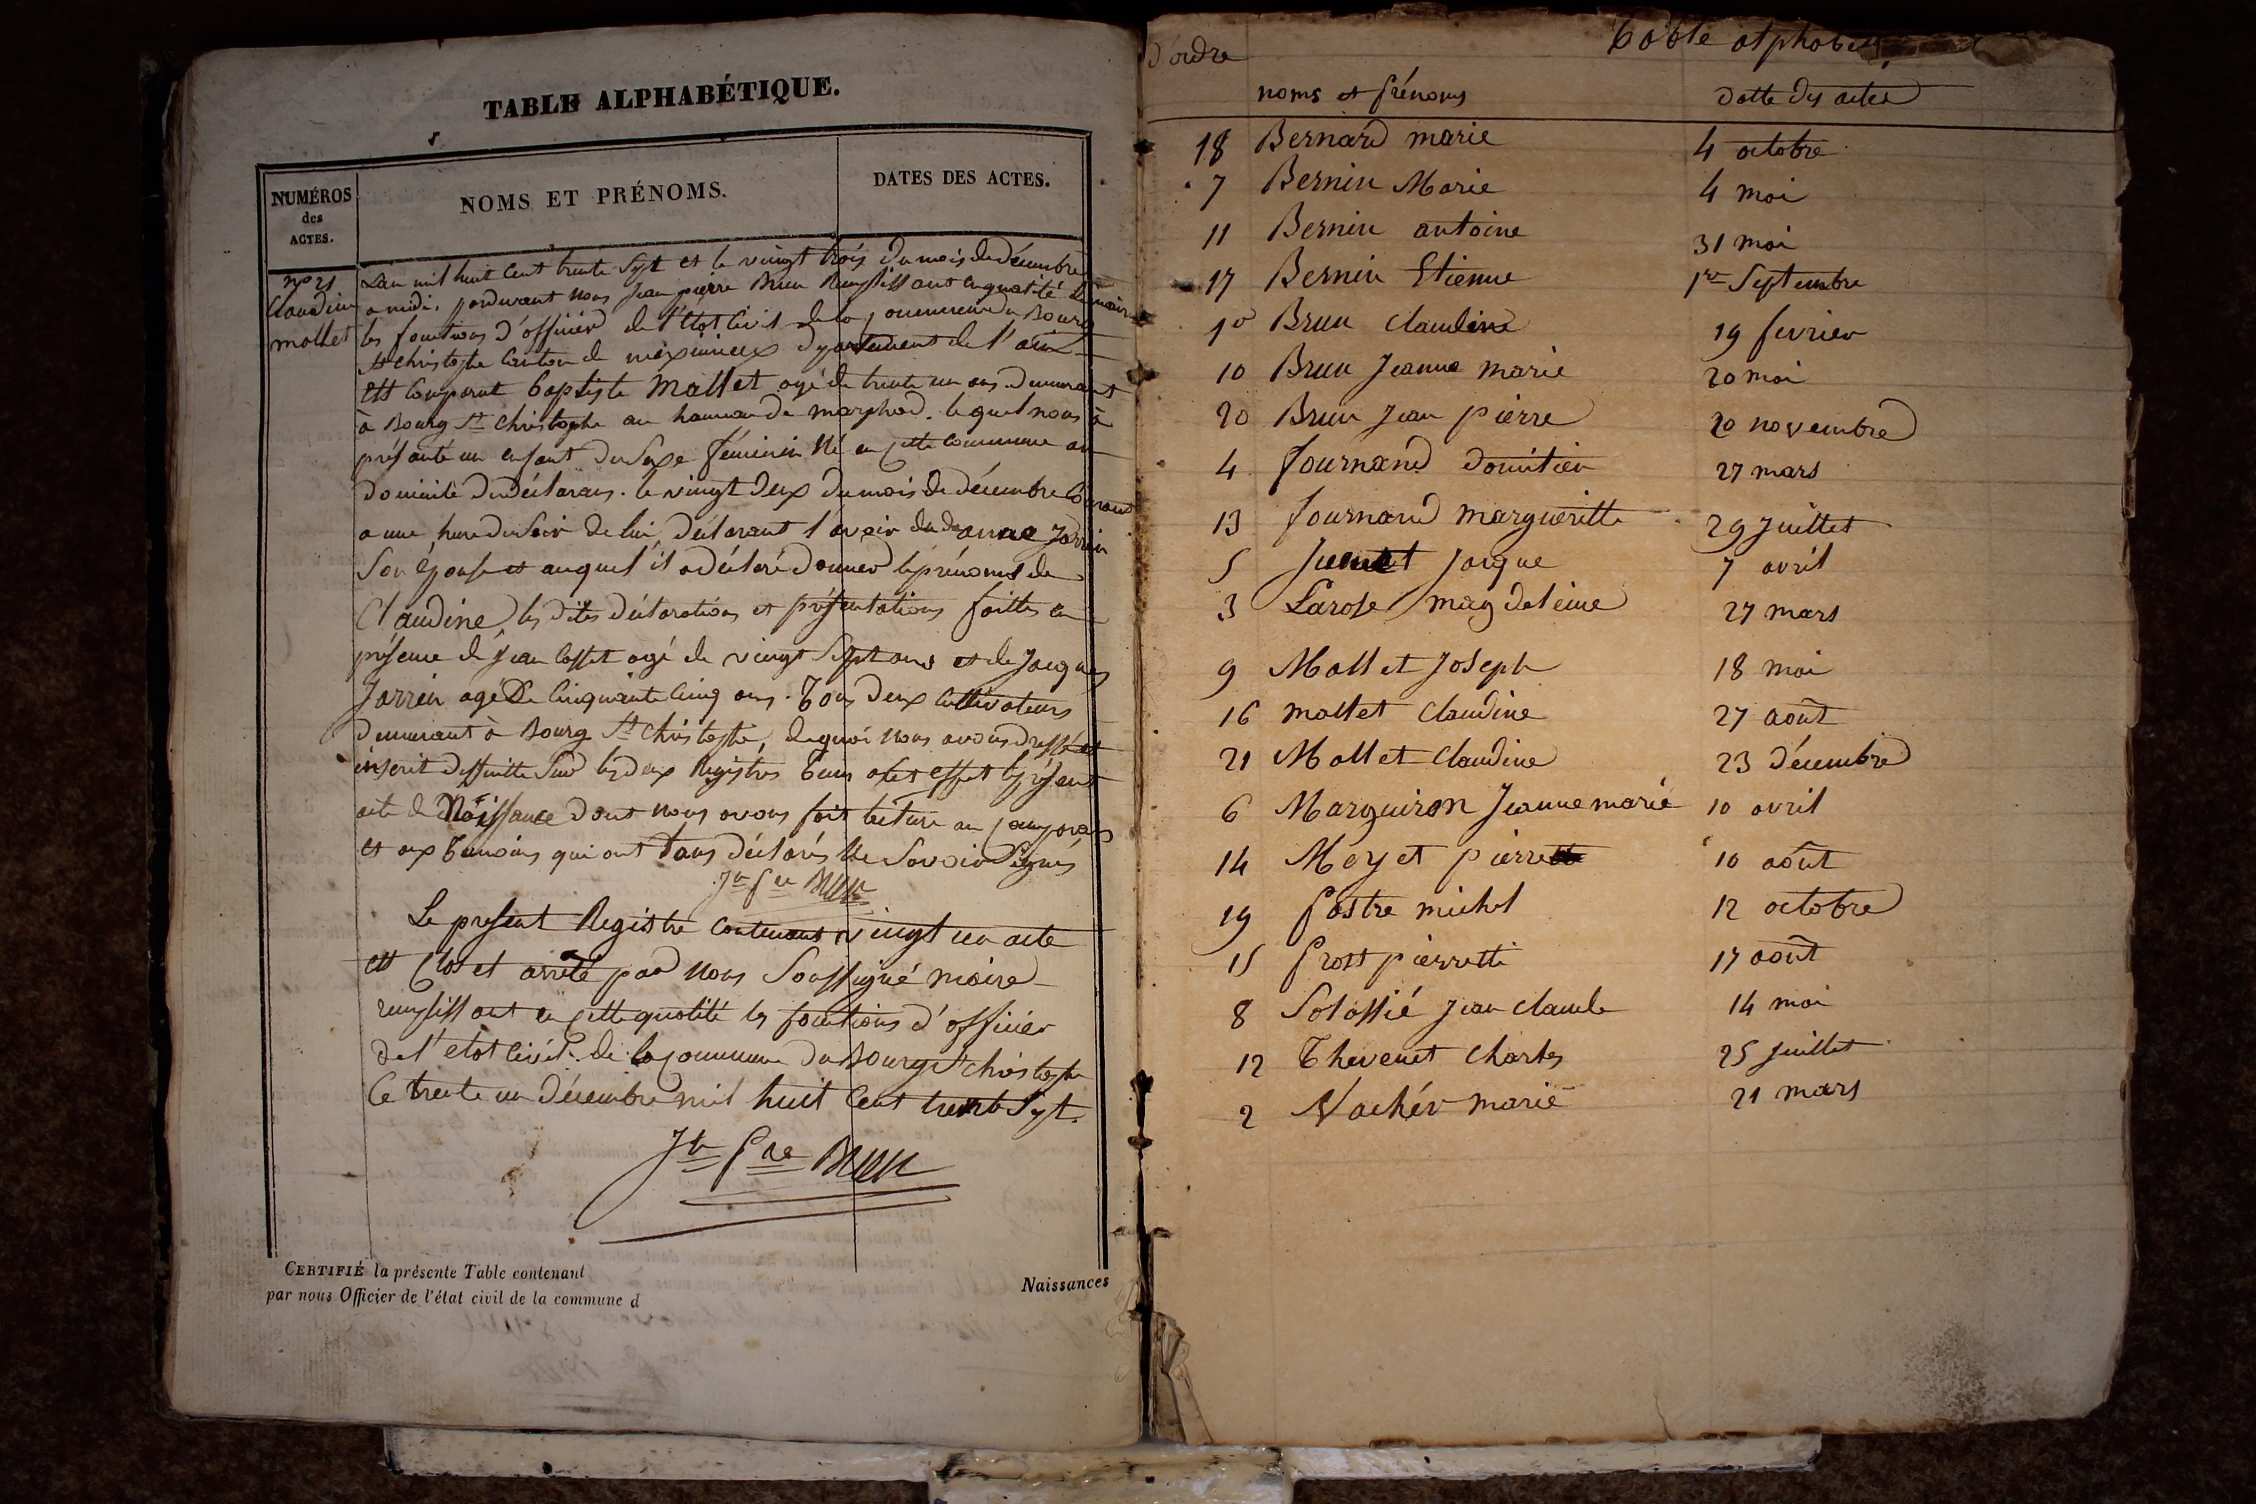 TABLE ALPHABÉTIQUE.
NUMÉROS des ACTES.
NOMS ET PRÉNOMS.
DATES DES ACTES.
no 21
Claudine
mollet
L'an mil huit cent trente sept et le vingt trois du mois de décembre
a midi, pardevant nous Jean pierre Brun Remplissant en qualité de maire
les fonctions d'officier de l'état civil de la commune du Bourg
st christophe canton de méximieux département de l'ain
est comparut baptiste Mallet agé de trente un ans demeurant
à Bourg St christophe au hameau de marphod. lequel nous à
présanté un enfant du sexe féminin né en cette commune au
domicile du déclarans. le vingt deux du mois de décembre courant
a une heure du soir de lui déclarant l'avoir du de anne Jarrin
son épouse et auquel il a déclaré donner le prénoms de
Claudine, les dites déclarations et présentations faittes en
présence de jean Cosset agé de vingt sept ans et de Jacques
Jarrin agé de cinquante cinq ans. tous deux cultivateurs
demeurant à Bourg St christophe, de quoi nous avons dressé et
inscrit dessuitte sur les deux Registres tenus a cet effet le présent
acte de Naissance dont nous avons fait lecture au comparans
et aux temoins qui ont tous déclarés ne savoir signés
Jn Pre Brun
Le present Registre contenant vingt un acte
est clos et arreté par nous soussigné maire
remplissant en cette qualité les fonctions d'officier
de l'etat civil. de la commune du Bourg St christophe
Ce trente un décembre mil huit cent trente sept.
Jn Pre Brun
CERTIFIÉ la présente Table contenant
Naissances
par nous Officier de l'état civil de la commune d
table alphabe
d'ordre
noms et prénoms
datte des actes
18 Bernard marie 4 octobre
7 Bernin Marie 4 mai
11 Bernin antoine 31 mai
17 Bernin Etienne 1er Septembre
1o Brun claudine 19 fevrier
10 Brun Jeanne marie 20 mai
20 Brun Jean pierre 20 novembre
4 fournand domitien 27 mars
13 fournand margueritte 29 Juillet
5 Juenet Jacque 7 avril
3 Larose magdeleine 27 mars
9 Mollet Joseph 18 mai
16 mollet claudine 27 août
21 Mollet claudine 23 décembre
6 Marguiron Jeanne marie 10 avril
14 Meyet pierre 10 août
19 pastre michel 12 octobre
15 prost pierrette 17 août
8 Solassié jean claude 14 mai
12 Thevenet charles 25 juillet
2 Vachér marie 21 mars